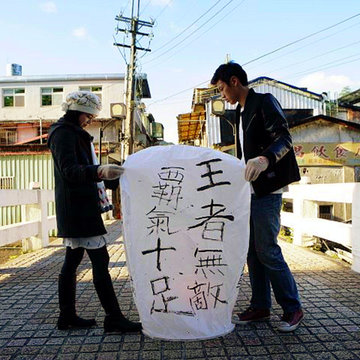 王者無敵
霸氣十足
飲食